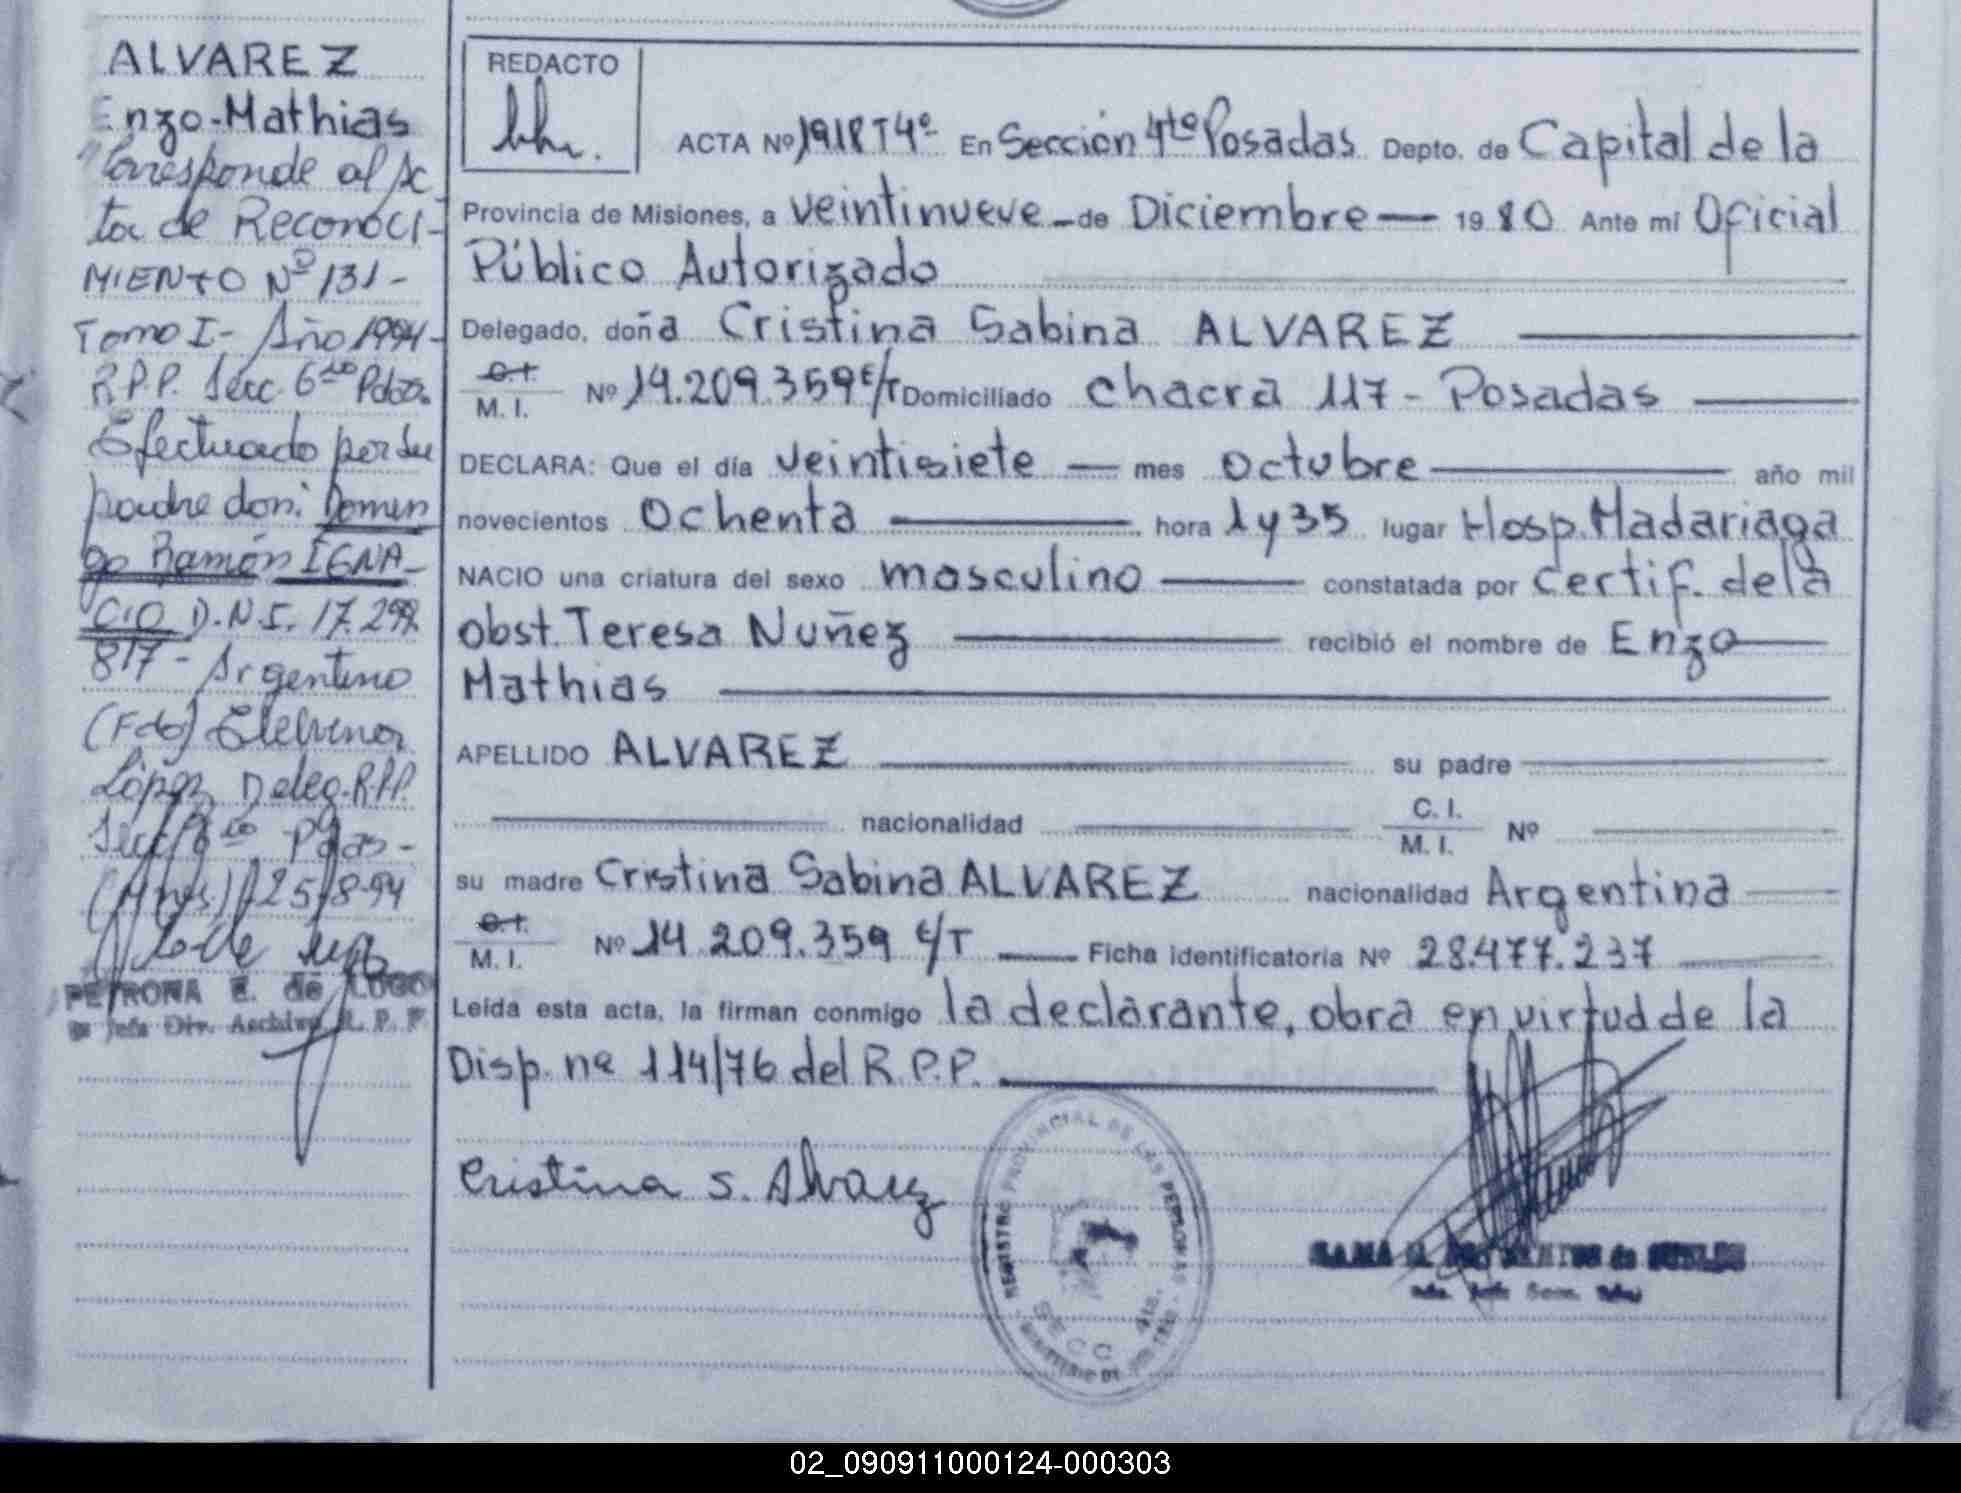 ALVAREZ
Enzo-Mathias
"Corresponde al Ac
ta de Reconoci-
MIENTO Nº 131-
Tomo I- Año 1994-
R.P.P. Secc. 6ta Pdas.
Efectuado por su
padre don: Domin
go Ramón IGNA-
CIO D.N.I. 17.299.
817- Argentino
(Fdo)
López Deleg. R.P.P.
Secc. 6ta Pdas-
(Mnes) 25-8-94
PETRONA E. de LUGO
Jefa Div. Archivo R. P. P.
REDACTO
ACTA Nº 1918 T4º En Sección 4ta Posadas Depto. de Capital de la
Provincia de Misiones, a veintinueve - de Diciembre — 19 80 Ante mí Oficial
Público Autorizado
Delegado, doña Cristina Sabina ALVAREZ
C.I. M. I. Nº 14.209.359 c/T Domiciliado chacra 117 - Posadas
DECLARA: Que el día veintisiete — mes octubre — año mil
novecientos ochenta — hora 1 y 35 lugar Hosp. Madariaga
NACIO una criatura del sexo masculino — constatada por certif. de la
obst. Teresa Nuñez — recibió el nombre de Enzo
Mathias
APELLIDO ALVAREZ — su padre
nacionalidad C. I. M. I. Nº
su madre Cristina Sabina ALVAREZ nacionalidad Argentina
C.I. M. I. Nº 14.209.359 c/T — Ficha identificatoria Nº 28.477.237
Leída esta acta, la firman conmigo la declarante, obra en virtud de la
Disp. nº 114/76 del R.P.P.
Cristina S. Alvarez
REGISTRO PROVINCIAL DE LAS PERSONAS
SECC 4ta.
02_090911000124-000303